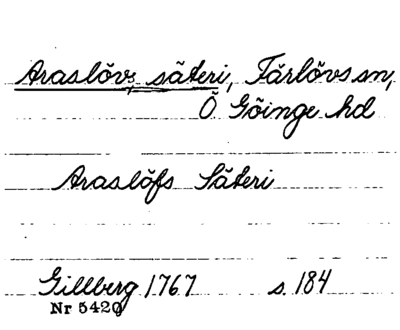 Araslövs säteri, Färlövs sn,
Ö Göinge hd
Araslöfs Säteri
Gillberg 1767 s. 184
Nr 5420